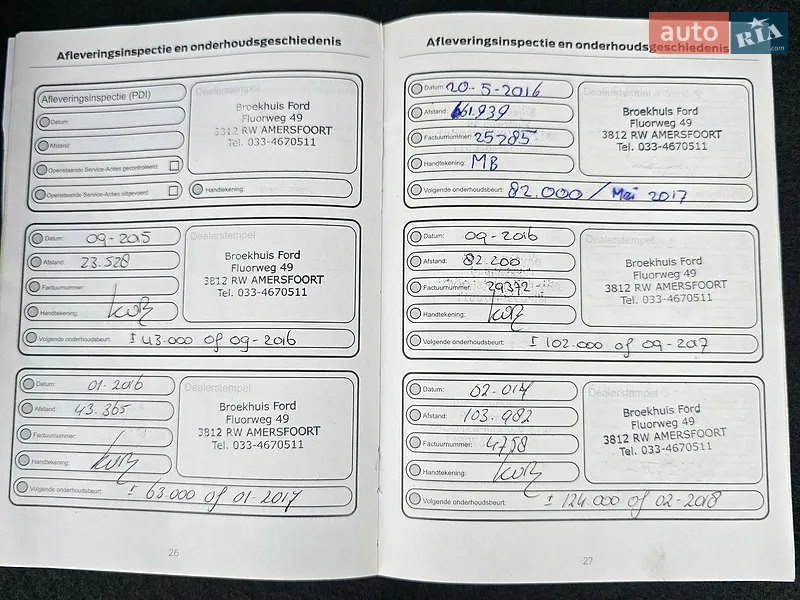 Afleveringsinspectie en onderhoudsgeschiedenis
Afleveringsinspectie (PDI)
Datum:
Afstand:
Openstaande Service-Acties gecontroleerd:
Openstaande Service-Acties uitgevoerd:
Dealerstempel
Broekhuis Ford
Fluorweg 49
3812 RW AMERSFOORT
Tel. 033-4670511
Handtekening:
Datum: 09-2015
Afstand: 23.528
Factuurnummer:
Handtekening:
Dealerstempel
Broekhuis Ford
Fluorweg 49
3812 RW AMERSFOORT
Tel. 033-4670511
Volgende onderhoudsbeurt: ± 43.000 of 09-2016
Datum: 01-2016
Afstand: 43.365
Factuurnummer:
Handtekening:
Dealerstempel
Broekhuis Ford
Fluorweg 49
3812 RW AMERSFOORT
Tel. 033-4670511
Volgende onderhoudsbeurt: ± 63.000 of 01-2017
26
Afleveringsinspectie en onderhoudsgeschiedenis
Datum: 20-5-2016
Afstand: 61.939
Factuurnummer: 25785
Handtekening: MB
Dealerstempel
Broekhuis Ford
Fluorweg 49
3812 RW AMERSFOORT
Tel. 033-4670511
Volgende onderhoudsbeurt: 82.000 / Mei 2017
Datum: 09-2016
Afstand: 82.200
Factuurnummer: 29372
Handtekening:
Dealerstempel
Broekhuis Ford
Fluorweg 49
3812 RW AMERSFOORT
Tel. 033-4670511
Volgende onderhoudsbeurt: ± 102.000 of 09-2017
Datum: 02-017
Afstand: 103.982
Factuurnummer: 4758
Handtekening:
Dealerstempel
Broekhuis Ford
Fluorweg 49
3812 RW AMERSFOORT
Tel. 033-4670511
Volgende onderhoudsbeurt: ± 124.000 of 02-2018
27
auto RIA .com